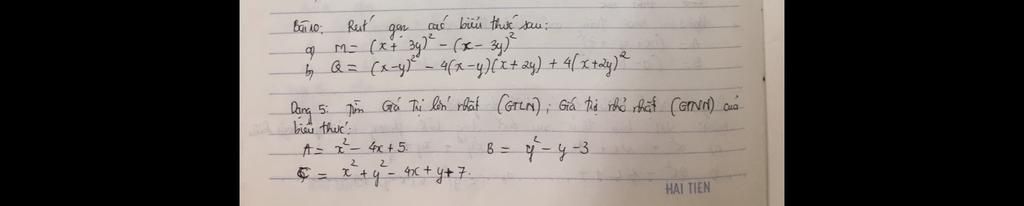 Bài 10: Rút gọn các biểu thức sau:
a) M = (x + 3y)² - (x - 3y)²
b) Q = (x-y)² - 4(x-y)(x+2y) + 4(x+2y)²
Dạng 5: Tìm Giá Trị lớn nhất (GTLN); Giá trị nhỏ nhất (GTNN) của
biểu thức:
A = x² - 4x + 5. B = y² - y - 3
C = x² + y² - 4x + y + 7.
HAI TIEN